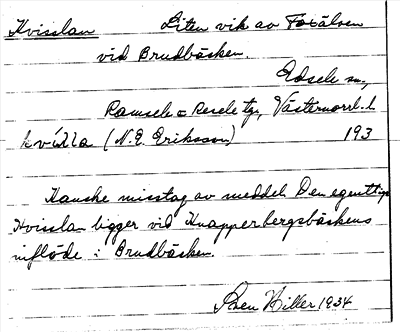 Kvisslan Liten vik av Faxälven
vid Brudbäcken.
Edsele sn,
Ramsele o Resele tg, Västernorrl. l
kvílla (N. E. Eriksson) 193
Kanske misstag av meddel. Den egentliga
Kvisslan ligger vid Knapperbergsbäckens
inflöde i Brudbäcken.
Hiller 1934